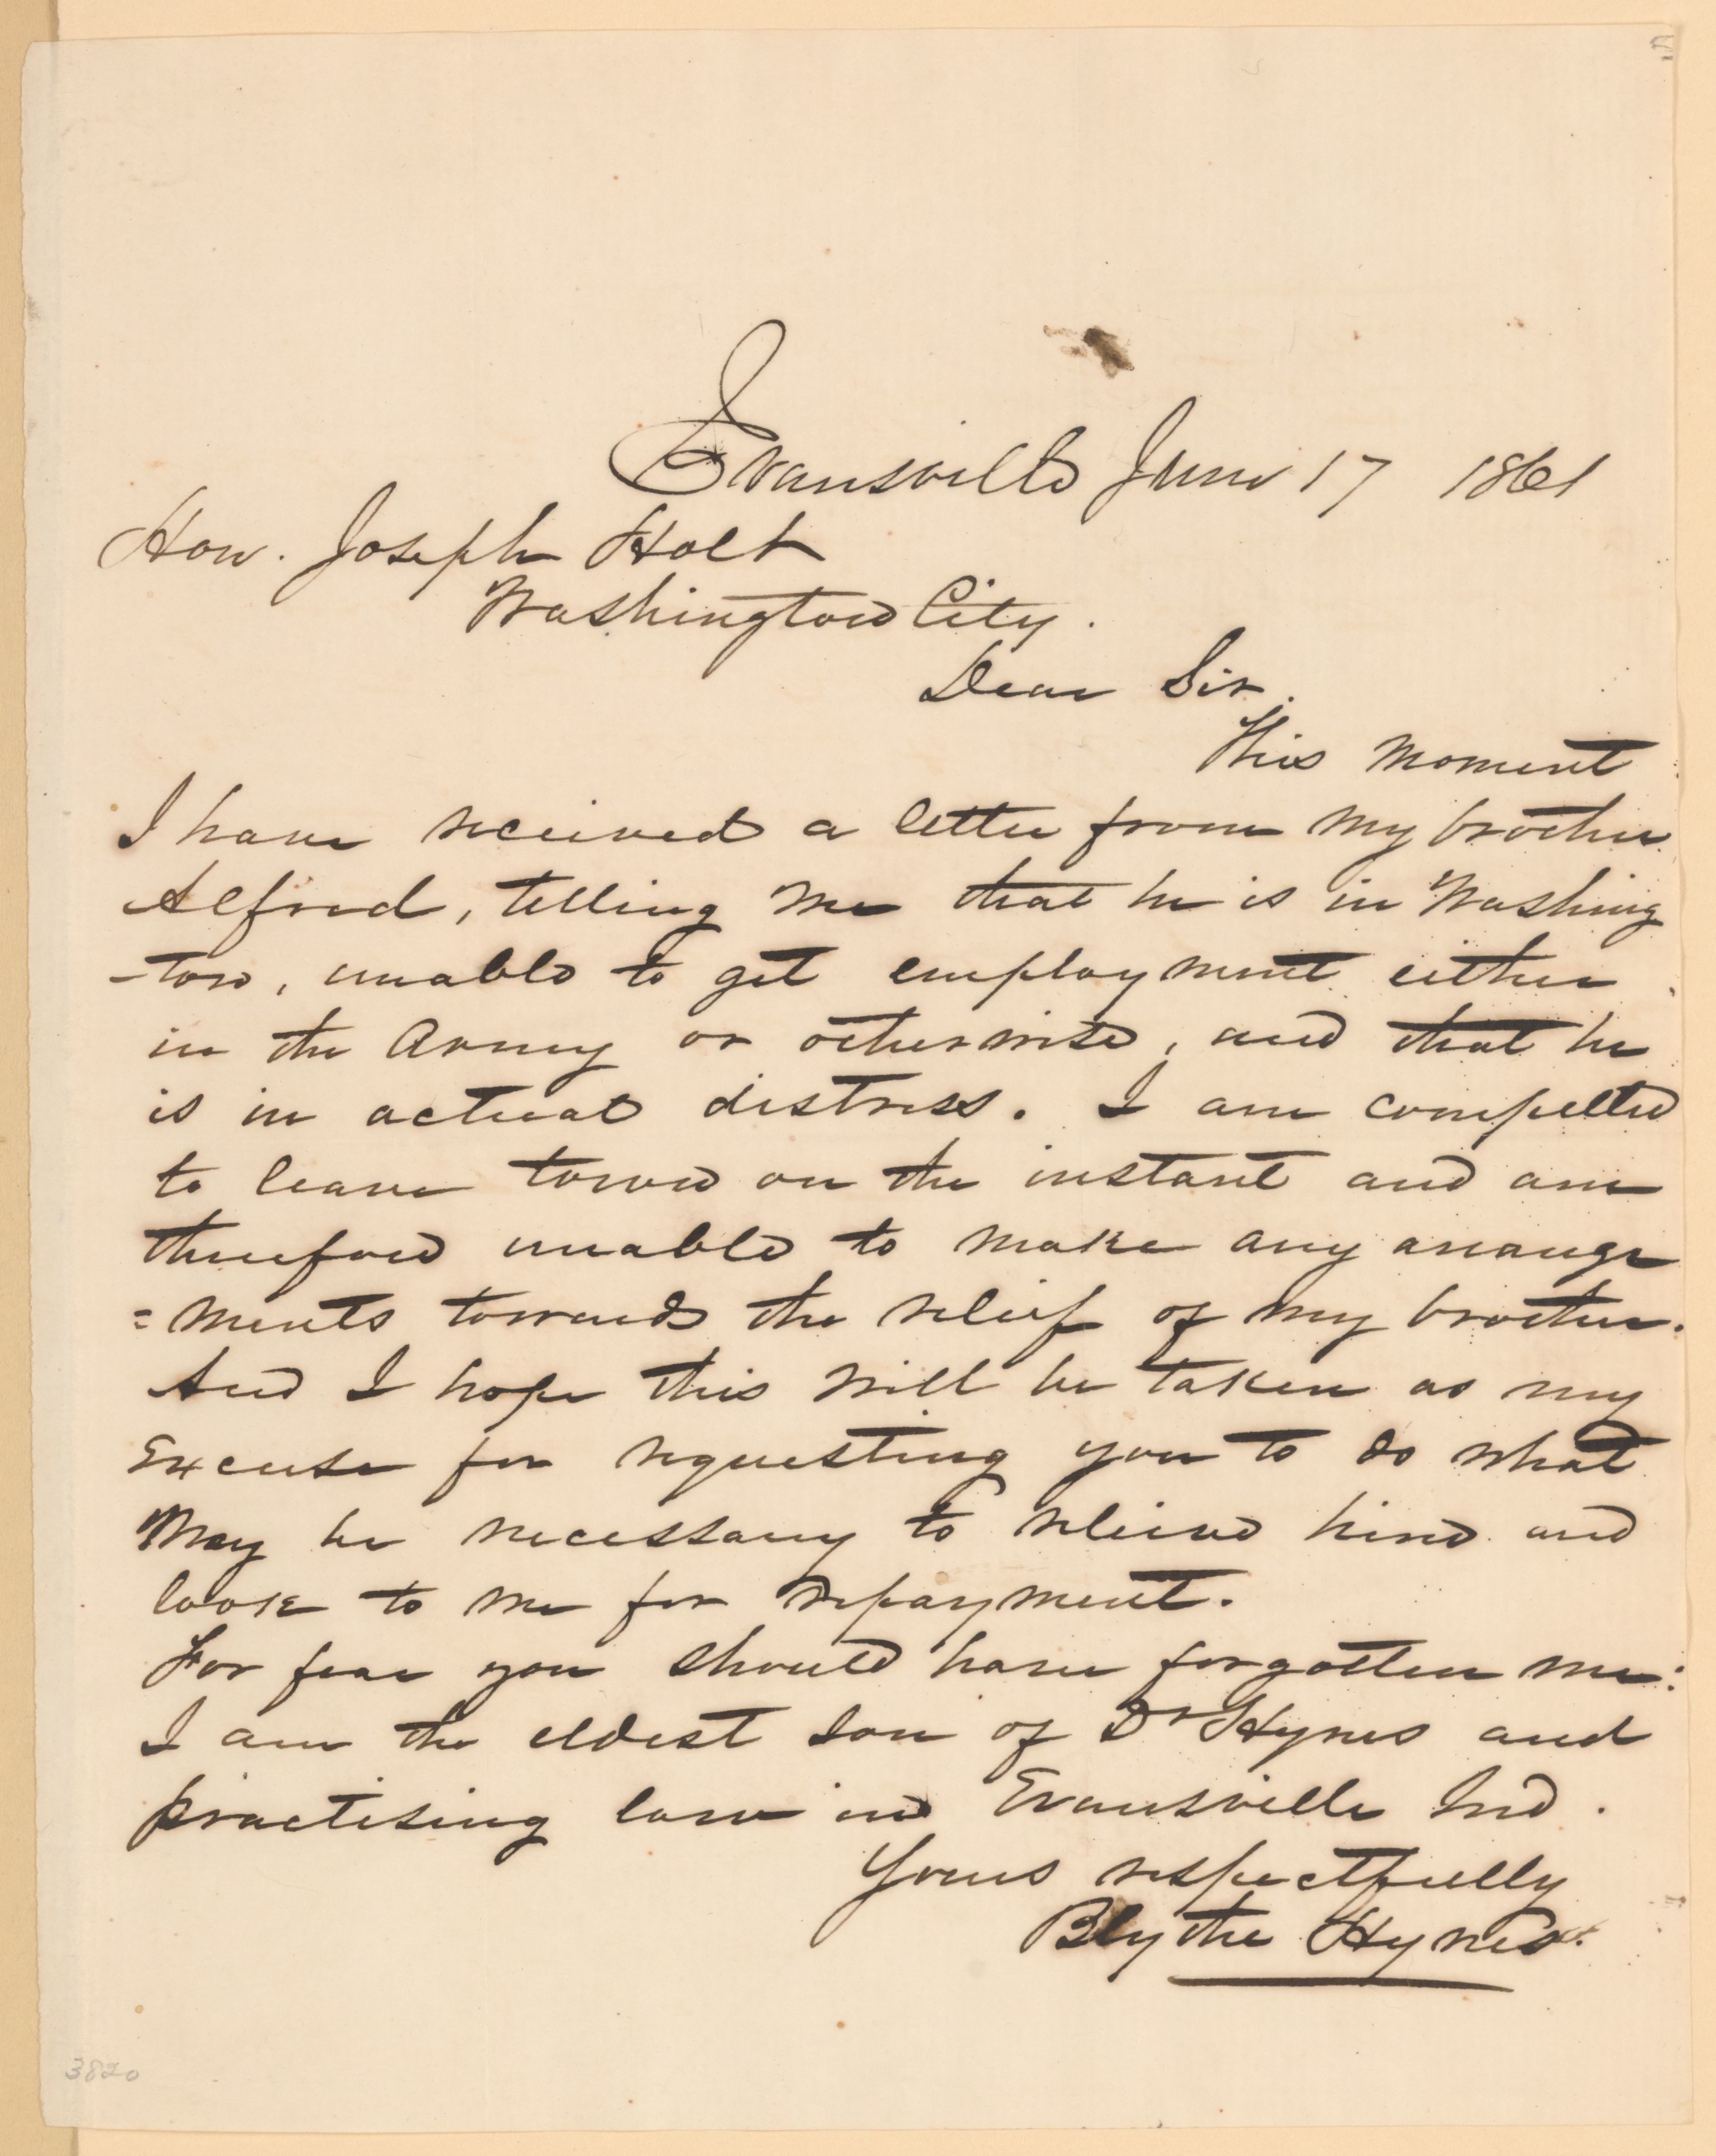 Evansville June 17 1861
Hon. Joseph Holt
Washington City.
Dear Sir.
This moment
I have received a letter from my brother
Alfred, telling me that he is in Washing
-ton, unable to get employment either
in the Army or otherwise, and that he
is in actual distress. I am compelled
to leave town on the instant and am
therefore unable to make any arrange
=ments towards the relief of my brother.
And I hope this will be taken as my
Excuse for requesting you to do what
May be necessary to relieve him and
look to me for repayment.
For fear you should have forgotten me:
I am the eldest son of Dr Hynes and
practising law in Evansville Ind.
Yours respectfully
Blythe Hynes.
3820